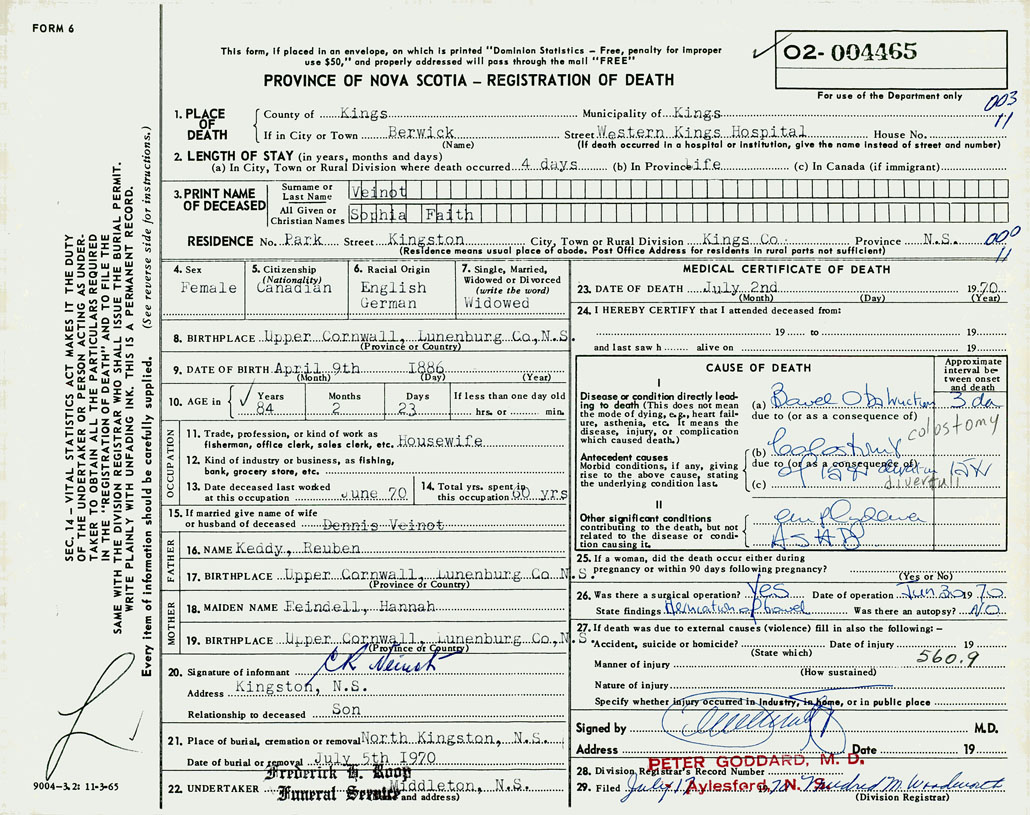 FORM 6
This form, if placed in an envelope, on which is printed "Dominion Statistics – Free, penalty for improper
use $50," and properly addressed will pass through the mail "FREE"
02- 004465
PROVINCE OF NOVA SCOTIA – REGISTRATION OF DEATH
For use of the Department only
003
11
1. PLACE OF DEATH
County of Kings Municipality of Kings
If in City or Town Berwick Street Western Kings Hospital House No.
(Name) (If death occurred in a hospital or institution, give the name instead of street and number)
2. LENGTH OF STAY (in years, months and days)
(a) In City, Town or Rural Division where death occurred 4 days (b) In Province Life (c) In Canada (if immigrant)
3. PRINT NAME OF DECEASED
Surname or Last Name Veinot
All Given or Christian Names Sophia Faith
RESIDENCE No. Park Street Kingston City, Town or Rural Division Kings Co Province N.S.
(Residence means usual place of abode. Post Office Address for residents in rural parts not sufficient)
000
11
4. Sex
Female
5. Citizenship
(Nationality)
Canadian
6. Racial Origin
English
German
7. Single, Married,
Widowed or Divorced
(write the word)
Widowed
8. BIRTHPLACE Upper Cornwall, Lunenburg Co,N.S.
(Province or Country)
9. DATE OF BIRTH April 9th 1886
(Month) (Day) (Year)
10. AGE in
Years Months Days If less than one day old
84 2 23 hrs. or min.
OCCUPATION
11. Trade, profession, or kind of work as
fisherman, office clerk, sales clerk, etc. Housewife
12. Kind of industry or business, as fishing,
bank, grocery store, etc.
13. Date deceased last worked
at this occupation June 70
14. Total yrs. spent in
this occupation 60 yrs
15. If married give name of wife
or husband of deceased Dennis Veinot
FATHER
16. NAME Keddy, Reuben
17. BIRTHPLACE Upper Cornwall, Lunenburg Co N.S.
(Province or Country)
MOTHER
18. MAIDEN NAME Feindell, Hannah
19. BIRTHPLACE Upper Cornwall, Lunenburg Co., N.S.
(Province or Country)
20. Signature of informant CR Veinot
Address Kingston, N.S.
Relationship to deceased Son
21. Place of burial, cremation or removal North Kingston, N.S.
Date of burial or removal July 5th 1970
Frederick H. Roop
22. UNDERTAKER Funeral Service Middleton, N.S.
and address)
MEDICAL CERTIFICATE OF DEATH
23. DATE OF DEATH July 2nd 1970
(Month) (Day) (Year)
24. I HEREBY CERTIFY that I attended deceased from:
19 to 19
and last saw h alive on 19
CAUSE OF DEATH
Approximate
interval be-
tween onset
and death
I
Disease or condition directly lead-
ing to death (This does not
mean the mode of dying, e.g., heart fail-
ure, asthenia, etc. It means the
disease, injury, or complication
which caused death.)
(a) Bowel Obstruction 3 da
due to (or as a consequence of)
colostomy
Antecedent causes
Morbid conditions, if any, giving
rise to the above cause, stating
the underlying condition last.
(b) Colostomy
due to (or as a consequence of)
(c)
diverticuli
II
Other significant conditions
contributing to the death, but not
related to the disease or condi-
tion causing it.
ASHD
25. If a woman, did the death occur either during
pregnancy or within 90 days following pregnancy?
(Yes or No)
26. Was there a surgical operation? Yes Date of operation Jun 30 1970
State findings of bowel Was there an autopsy? NO
27. If death was due to external causes (violence) fill in also the following: –
Accident, suicide or homicide? Date of injury 19
(State which)
560.9
Manner of injury
(How sustained)
Nature of injury
Specify whether injury occurred in industry, in home, or in public place
Signed by M.D.
Address Date 19
PETER GODDARD, M. D.
Aylesford, N. S.
28. Division Registrar's Record Number
29. Filed July 17 1970 Mildred M. Woodworth
(Division Registrar)
SEC. 14 – VITAL STATISTICS ACT MAKES IT THE DUTY
OF THE UNDERTAKER OR PERSON ACTING AS UNDER-
TAKER TO OBTAIN ALL THE PARTICULARS REQUIRED
IN THE "REGISTRATION OF DEATH" AND TO FILE THE
SAME WITH THE DIVISION REGISTRAR WHO SHALL ISSUE THE BURIAL PERMIT.
WRITE PLAINLY WITH UNFADING INK. THIS IS A PERMANENT RECORD.
Every item of information should be carefully supplied. (See reverse side for instructions.)
9004-3.2: 11-3-65